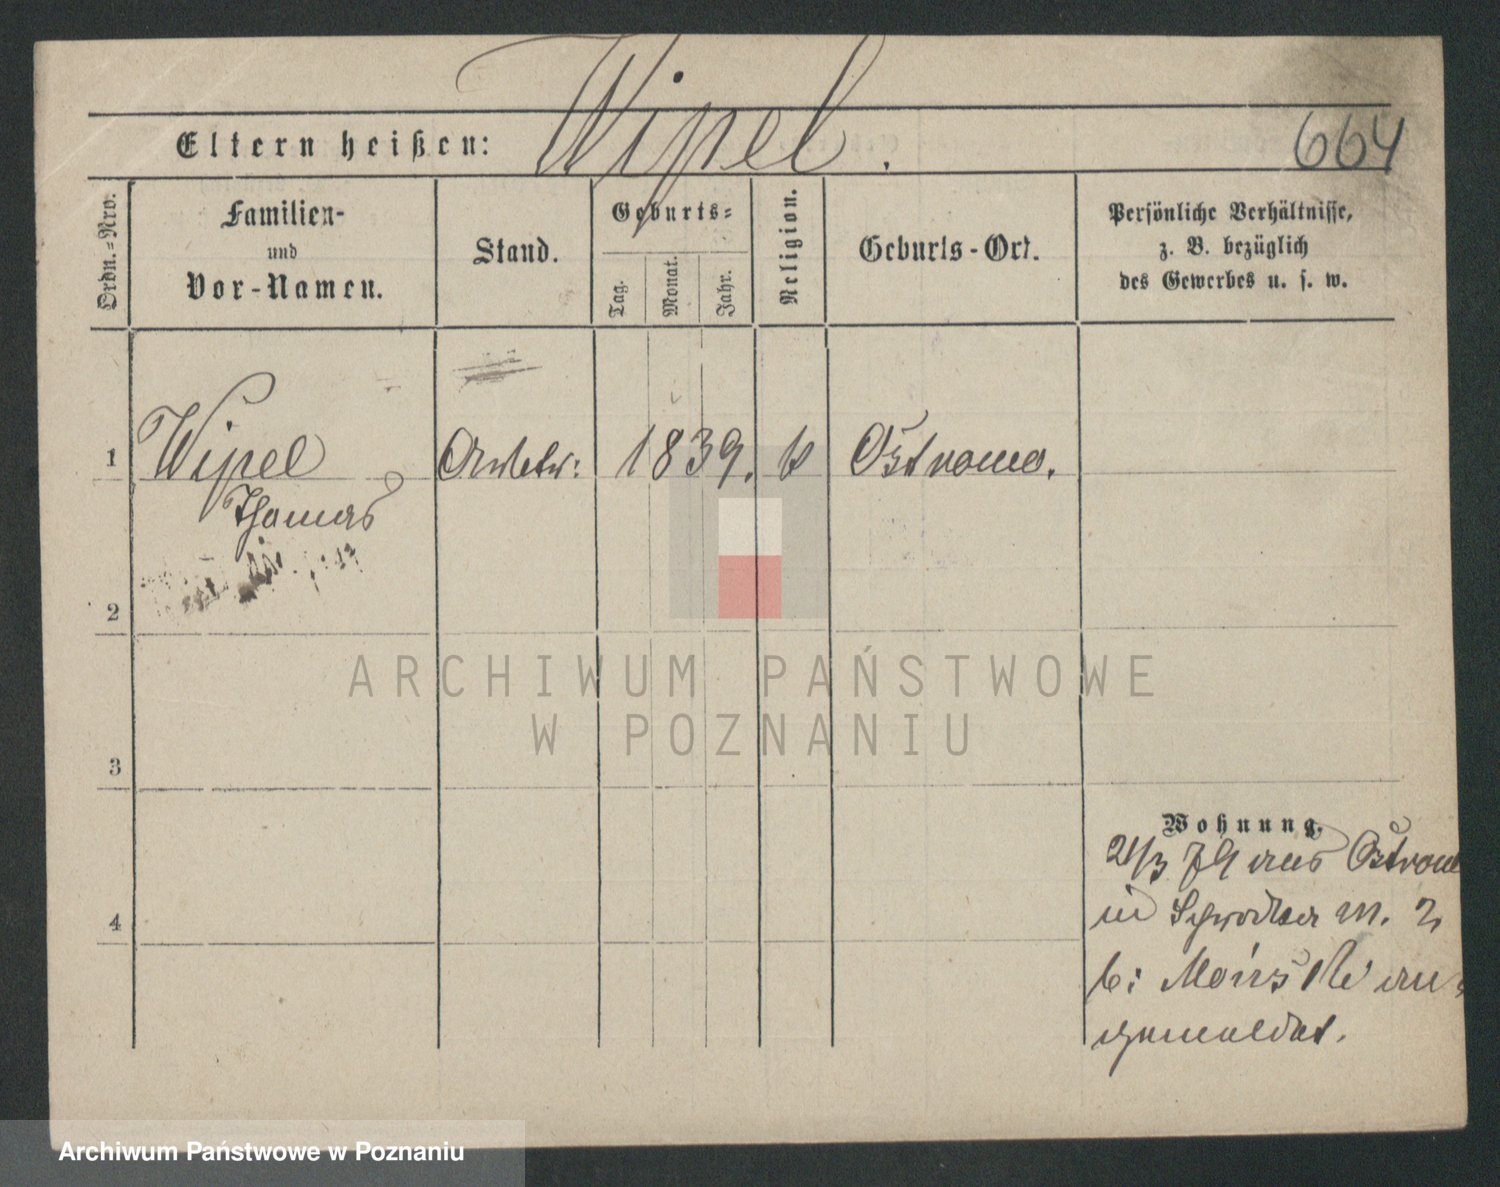 Wipel.
Eltern heißen:
664
Ordn.=Nro.
Familien-
und
Vor-Namen.
Stand.
Geburts=
Tag.
Monat.
Jahr.
Religion.
Geburts-Ort.
Persönliche Verhältnisse,
z. B. bezüglich
des Gewerbes u. s. w.
1
Wipel
Thomas
1839.
Ostrowo.
2
3
4
Wohnung.
21/3 79 aus Ostrow
in Schrodka M. 2
b:
an=
gemeldet.
ARCHIWUM PAŃSTWOWE
W POZNANIU
Archiwum Państwowe w Poznaniu